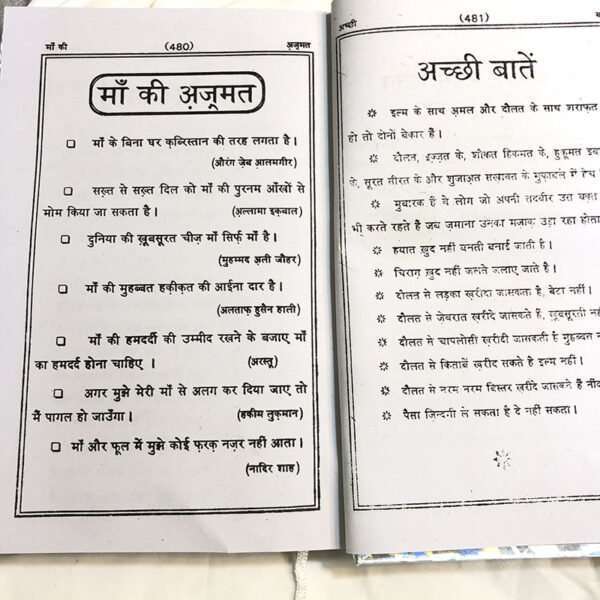 माँ की (480) अ़ज़्मत
माँ की अ़ज़्मत
❑ माँ के बिना घर क़ब्रिस्तान की तरह लगता है।
(औरंग ज़ेब आलमगीर)
❑ सख़्त से सख़्त दिल को माँ की पुरनम आँखों से
मोम किया जा सकता है। (अ़ल्लामा इक़बाल)
❑ दुनिया की ख़ूबसूरत चीज़ माँ सिर्फ़ माँ है।
(मुहम्मद अ़ली जौहर)
❑ माँ की मुहब्बत हक़ीक़त की आईना दार है।
(अलताफ़ हुसैन हाली)
❑ माँ की हमदर्दी की उम्मीद रखने के बजाए माँ
का हमदर्द होना चाहिए । (अरस्तू)
❑ अगर मुझे मेरी माँ से अलग कर दिया जाए तो
मैं पागल हो जाउँगा। (हकीम लुक़मान)
❑ माँ और फूल में मुझे कोई फ़रक़ नज़र नही आता।
(नादिर शाह)
अच्छी (481)
अच्छी बातें
इल्म के साथ अमल और दौलत के साथ शराफ़त
हो तो दोनों बेकार है।
दौलत, इ़ज़्ज़त के, शौकत हिकमत के, हुकूमत
के, सूरत सीरत के और शुजाअ़त सख़ावत के मुक़ाबले में
मुबारक हैं वे लोग जो अपनी तदबीर उस वक़्त
भी करते रहते है जब ज़माना उनका मज़ाक़ उड़ा रहा होता
हयात ख़ुद नहीं बनती बनाई जाती है।
चिराग़ ख़ुद नहीं जलते जलाए जाते है।
दौलत से लड़का ख़रीदा जासकता है, बेटा नहीं।
दौलत से ज़ेबरात ख़रीदे जासकते है, ख़ूबसूरती नहीं
दौलत से चापलोसी ख़रीदी जासकती है मुहब्बत
दौलत से किताबें ख़रीद सकते है इल्म नहीं।
दौलत से नरम नरम बिस्तर ख़रीदे जासकते है नींद
पैसा ज़िन्दगी ले सकता है दे नहीं सकता।